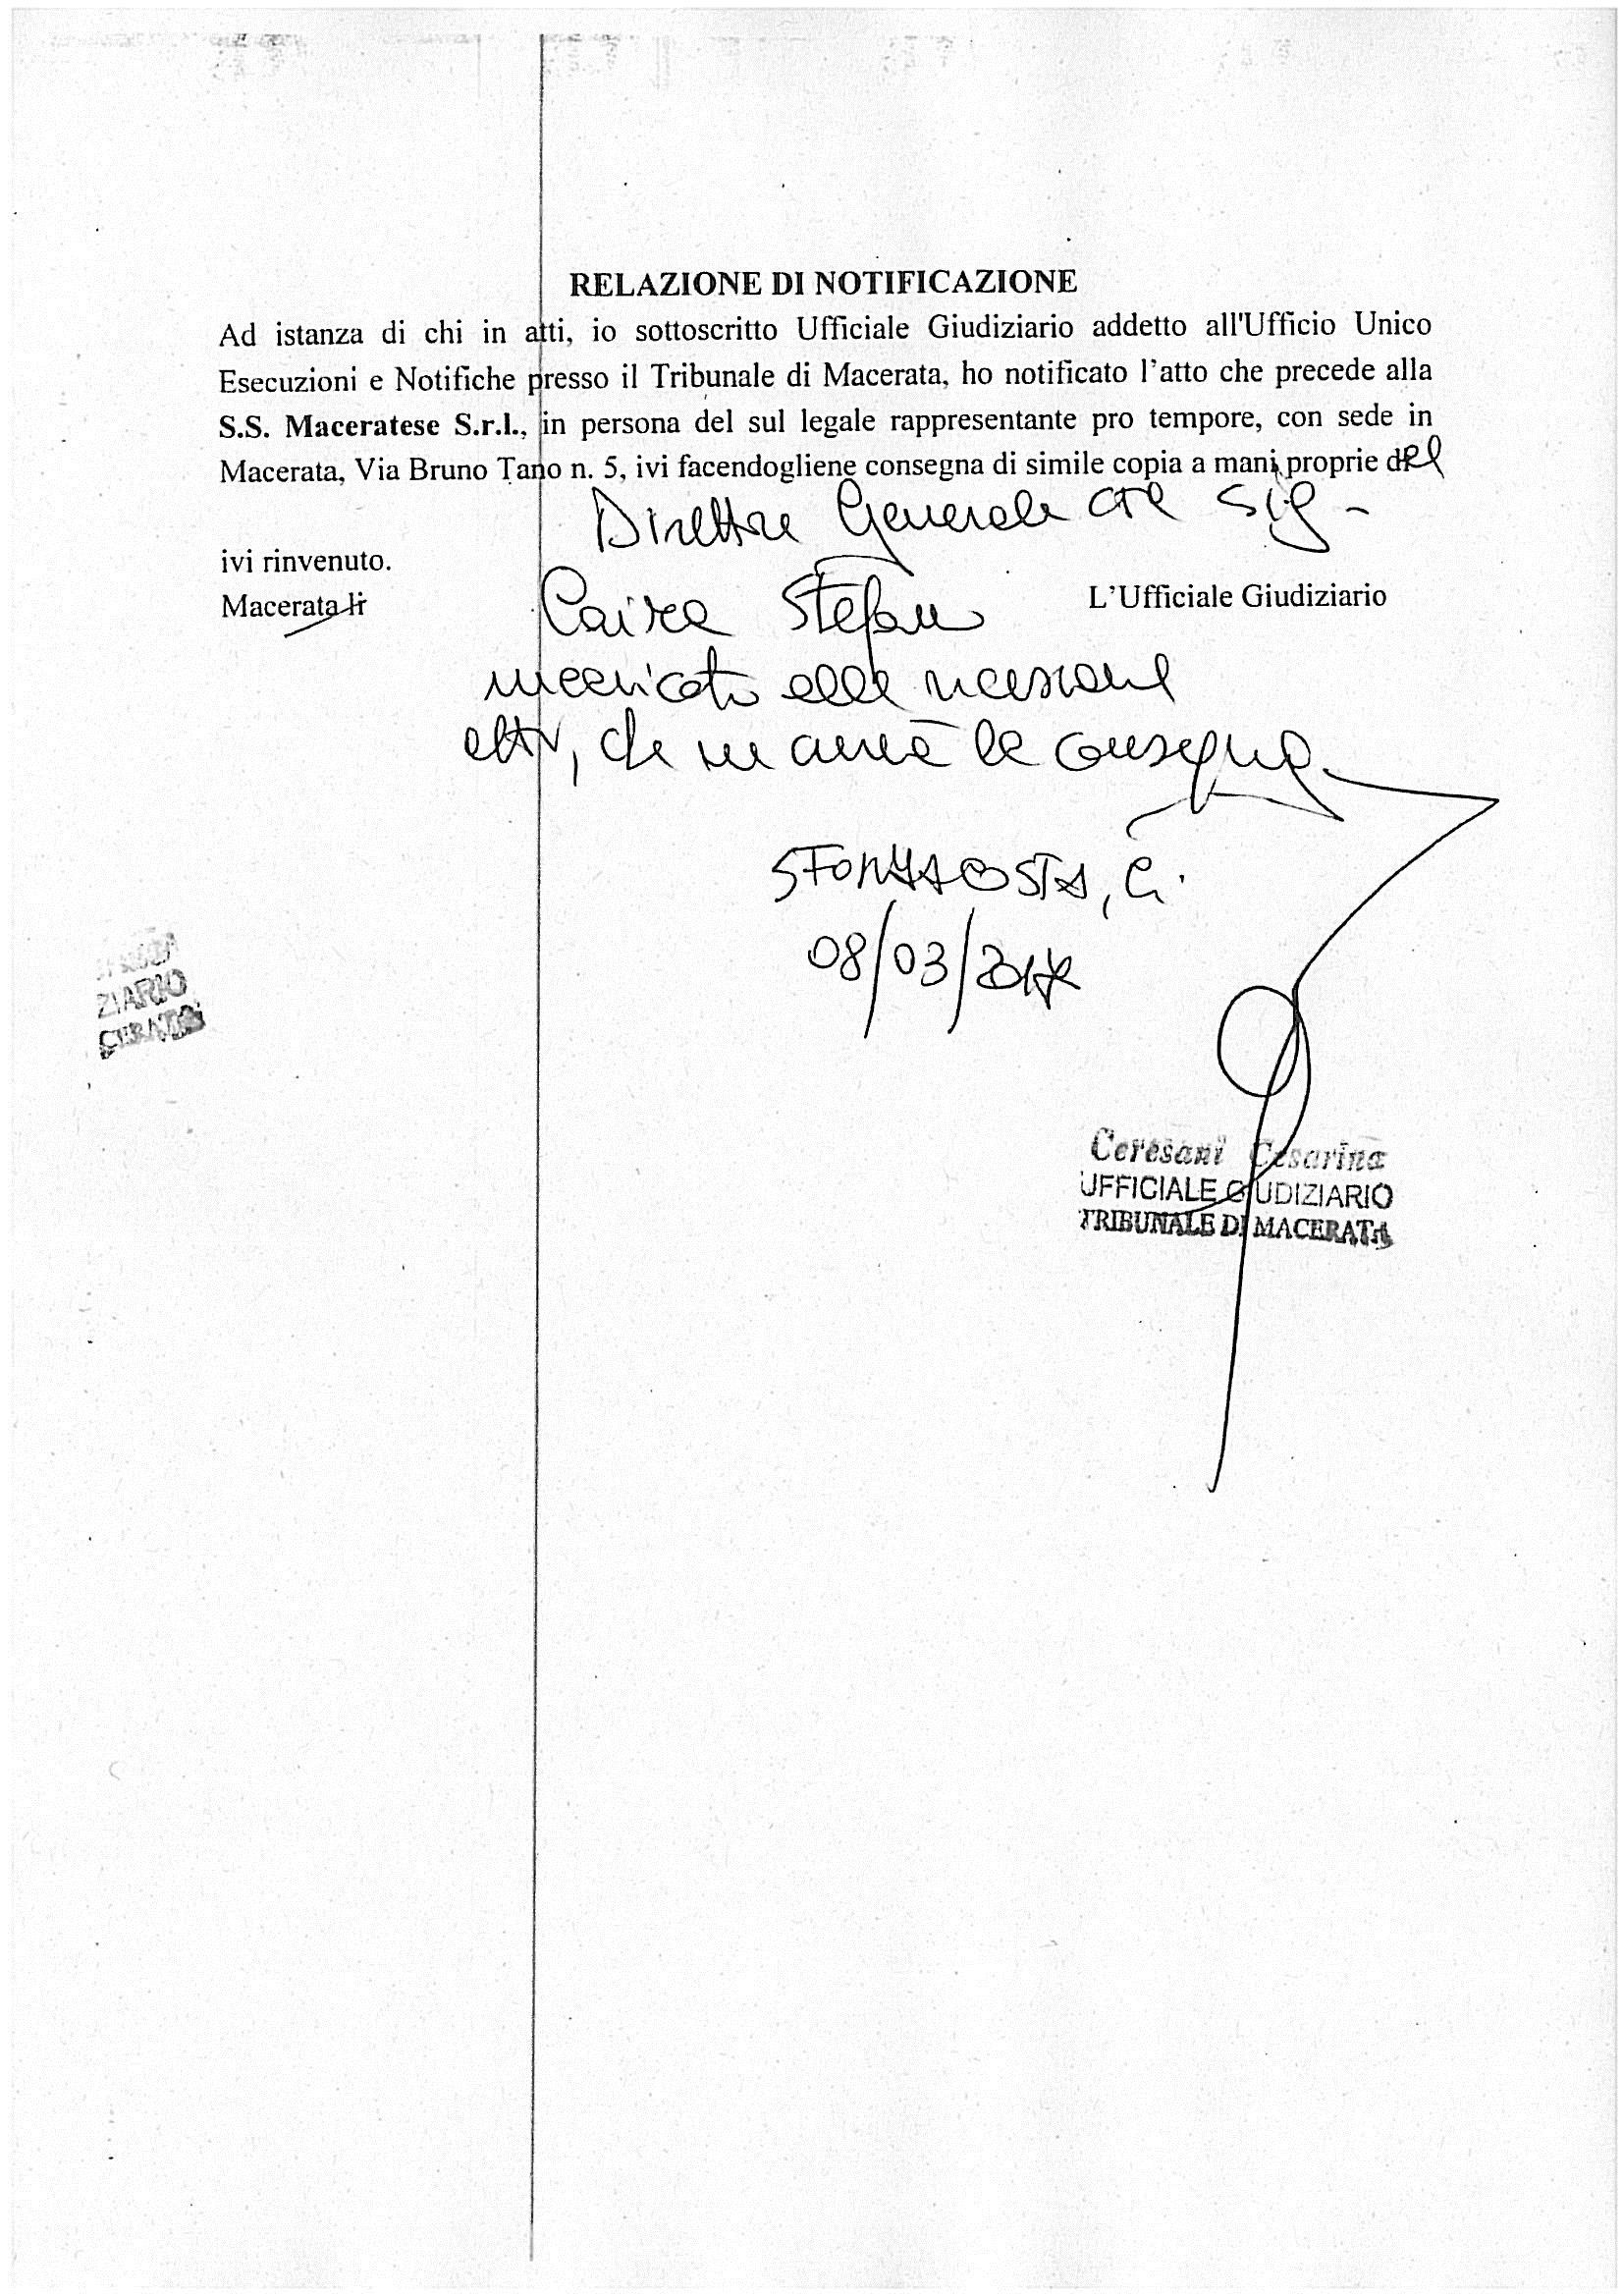 RELAZIONE DI NOTIFICAZIONE
Ad istanza di chi in atti, io sottoscritto Ufficiale Giudiziario addetto all'Ufficio Unico
Esecuzioni e Notifiche presso il Tribunale di Macerata, ho notificato l'atto che precede alla
S.S. Maceratese S.r.l., in persona del sul legale rappresentante pro tempore, con sede in
Macerata, Via Bruno Tano n. 5, ivi facendogliene consegna di simile copia a mani proprie del
Direttore Generale Sig.
ivi rinvenuto.
Macerata lì
Stefano
L'Ufficiale Giudiziario
incaricato alla ricezione
atti, che ne cura la consegna
08/03/2017
ZIARIO
Ceresani Cesarina
UFFICIALE GIUDIZIARIO
TRIBUNALE DI MACERATA